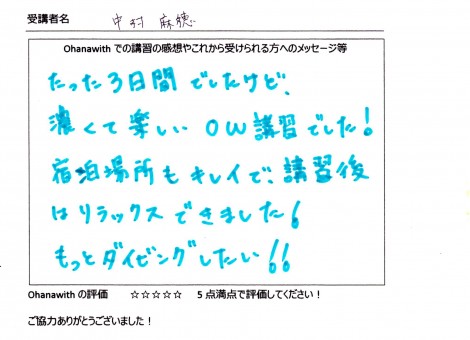 受講者名 中村 麻穂
Ohanawith での講習の感想やこれから受けられる方へのメッセージ等
たった3日間でしたけど、
濃くて楽しい OW講習でした!
宿泊場所もキレイで、講習後
はリラックスできました!
もっとダイビングしたい!!
Ohanawith の評価 ☆☆☆☆☆ 5点満点で評価してください!
ご協力ありがとうございました!